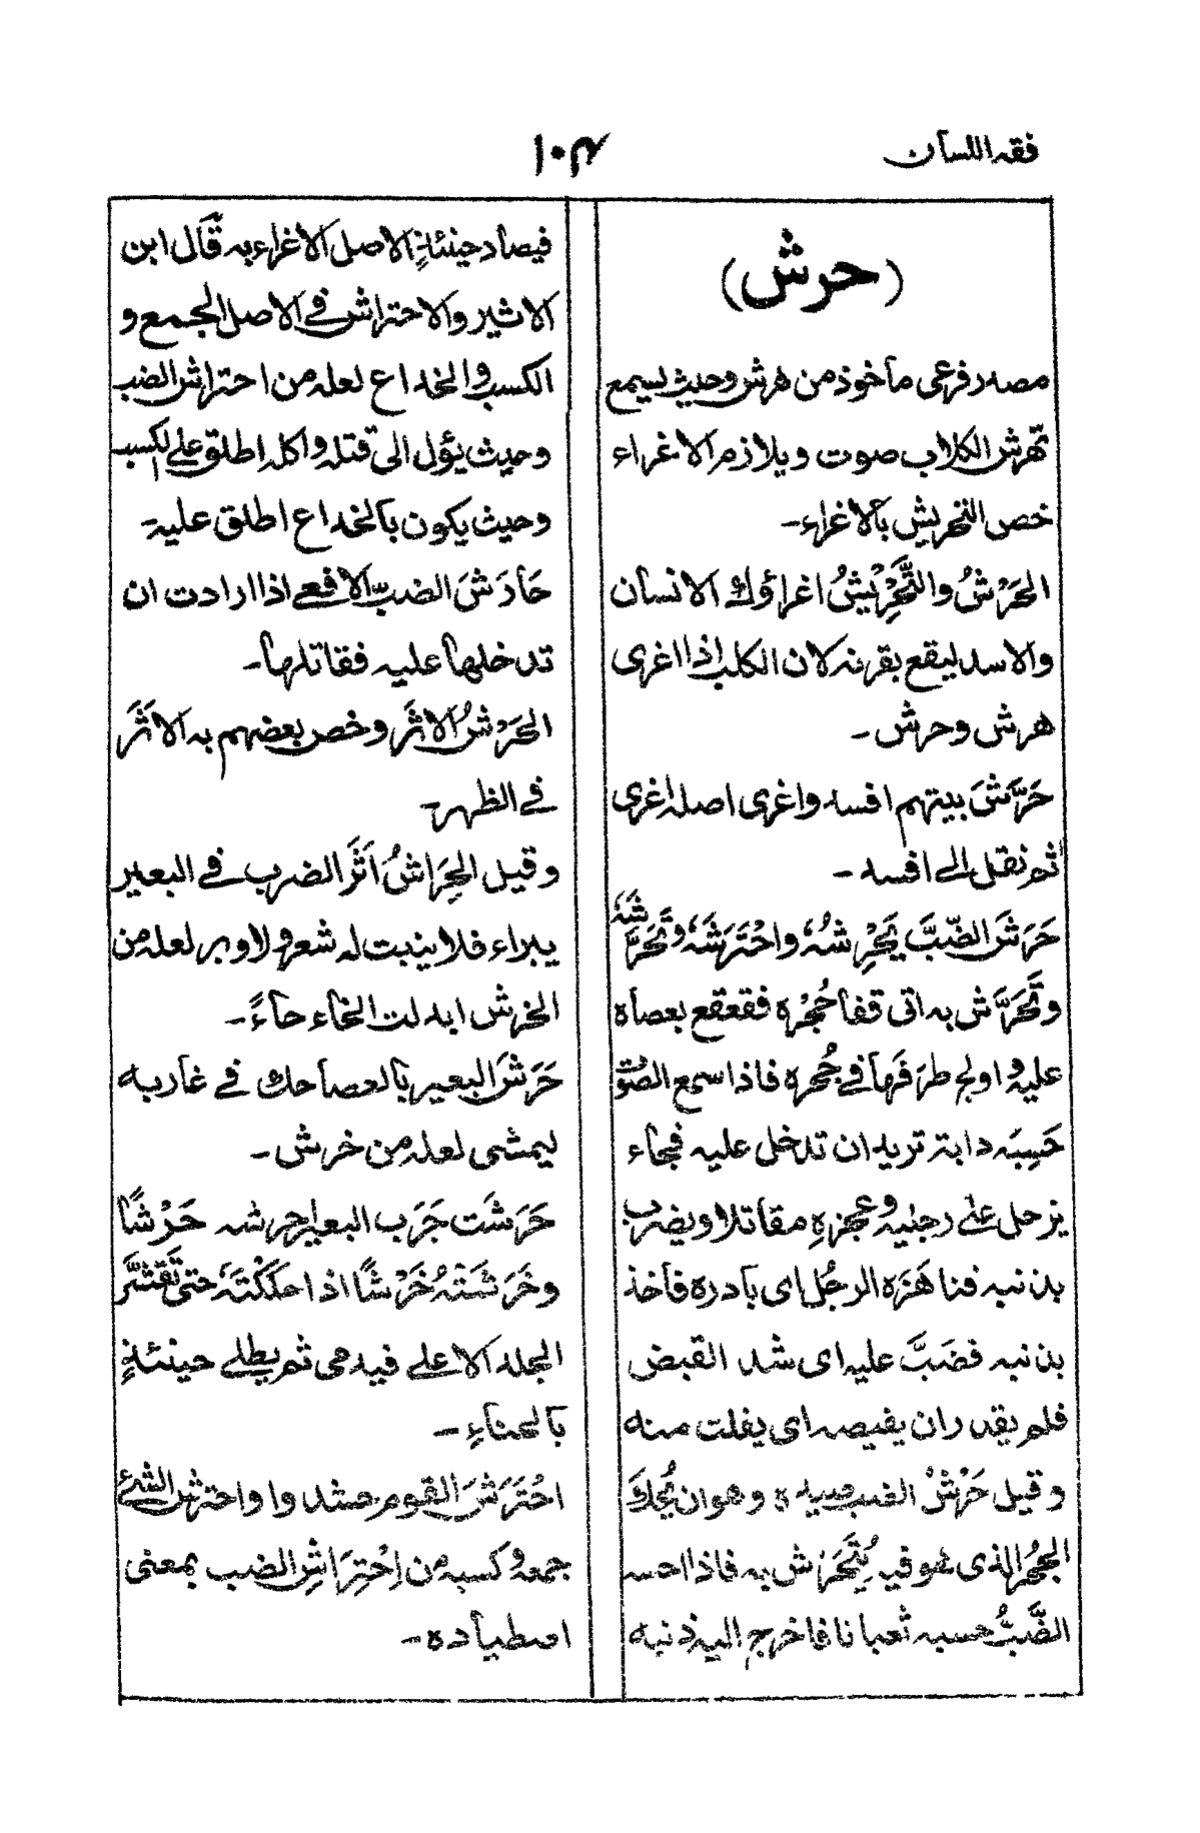 فقه اللسان
١٠٤
(حرش)
مصدر فرعى مأخوذ من هرش وحيث يسمع
تهرش الكلاب صوت ويلازم الاغراء
خص التحريش بالاغراء-
الحَرْشُ والتَّحْرِيْشُ اغراؤك الانسان
والاسد ليقع بقرنه لان الكلب اذا اغرى
هرش وحرش-
حَرَّشَ بينهم افسد واغرى اصله اغرى
ثم نقل الى افسد-
حَرَشَ الضَّبَّ يَحْرِشُهُ واحْتَرَشَهُ وتَحَرَّشَهُ
وتَحَرَّش به اتى قفا حُجْرِه فقعقع بعصاه
عليه واولج طرَفَها فى حُجره فاذا سمع الصَّوْت
حَسِبَه دابة تريد ان تدخل عليه فجاء
يزحل على رجليه وعجزهِ مقاتلا ويضرب
بذنبه فناهَزَه الرجُل اى بادره فأخذ
بذنبه فضَبَّ عليه اى شد القبض
فلم يقدر ان يفيصه اى يفلت منه
وقيل حَرْشُ الضب صيده وهو ان يُحَكَّ
الجُحْر الذى هو فيه يُتَحَرَّش به فاذا احسه
الضَّبُّ حسبه ثعبانا فاخرج اليه ذنبه
فيصاد حينئذٍ الاصل الاغراء به قَال ابن
الاثير والاحتراش فى الاصل الجمع و
الكسب والخداع لعله من احتراش الضب
وحيث يؤل الى قتله واكله اطلق على الكسب
وحيث يكون بالخداع اطلق عليه-
حَارَشَ الضبّ الافعى اذا ارادت ان
تدخلها عليه فقاتلها-
الحَرْشُ الاثَر وخص بعضهم به الاَثَرَ
فى الظهر-
وقيل الحِرَاشُ اَثَرُ الضرب فى البعير
يبراء فلا ينبت له شعر ولا وبر لعله من
الخرش ابدلت الخاء حاءً-
حَرَشَ البعير بالعصا حك فى غاربه
ليمشى لعله من خرش-
حَرَشَت جَرَب البعير احرشه حَرْشًا
وخَرَشَتْهُ خَرْشًا اذا حككْتَهُ حتى تَقَشَّرَ
الجلد الاعلى فيدمى ثم يطلى حينئذٍ
بالهناءِ-
احْتَرَشَ القوم حشدوا واحترش الشئ
جمعه وكسبه من اِحْتِرَاشِ الضب بمعنى
اصطياده-